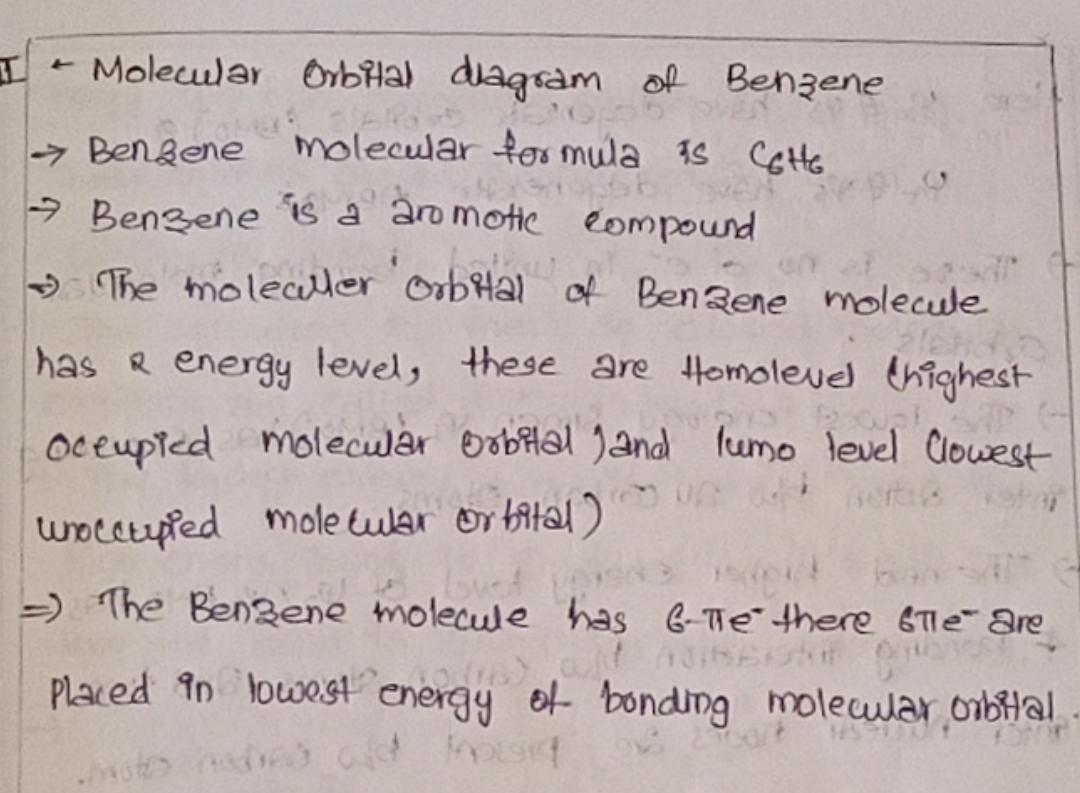 I ← Molecular Orbital diagram of Benzene
→ Benzene molecular formula is C6H6
→ Benzene is a aromotic compound
→ The moleculler Orbital of Benzene molecule
has 2 energy level, these are Homolevel (highest
occupied molecular orbital) and lumo level (lowest
unoccupied molecular orbital)
⇒ The Benzene molecule has 6-πe- there 6πe- are
Placed in lowest energy of bonding molecular orbital.